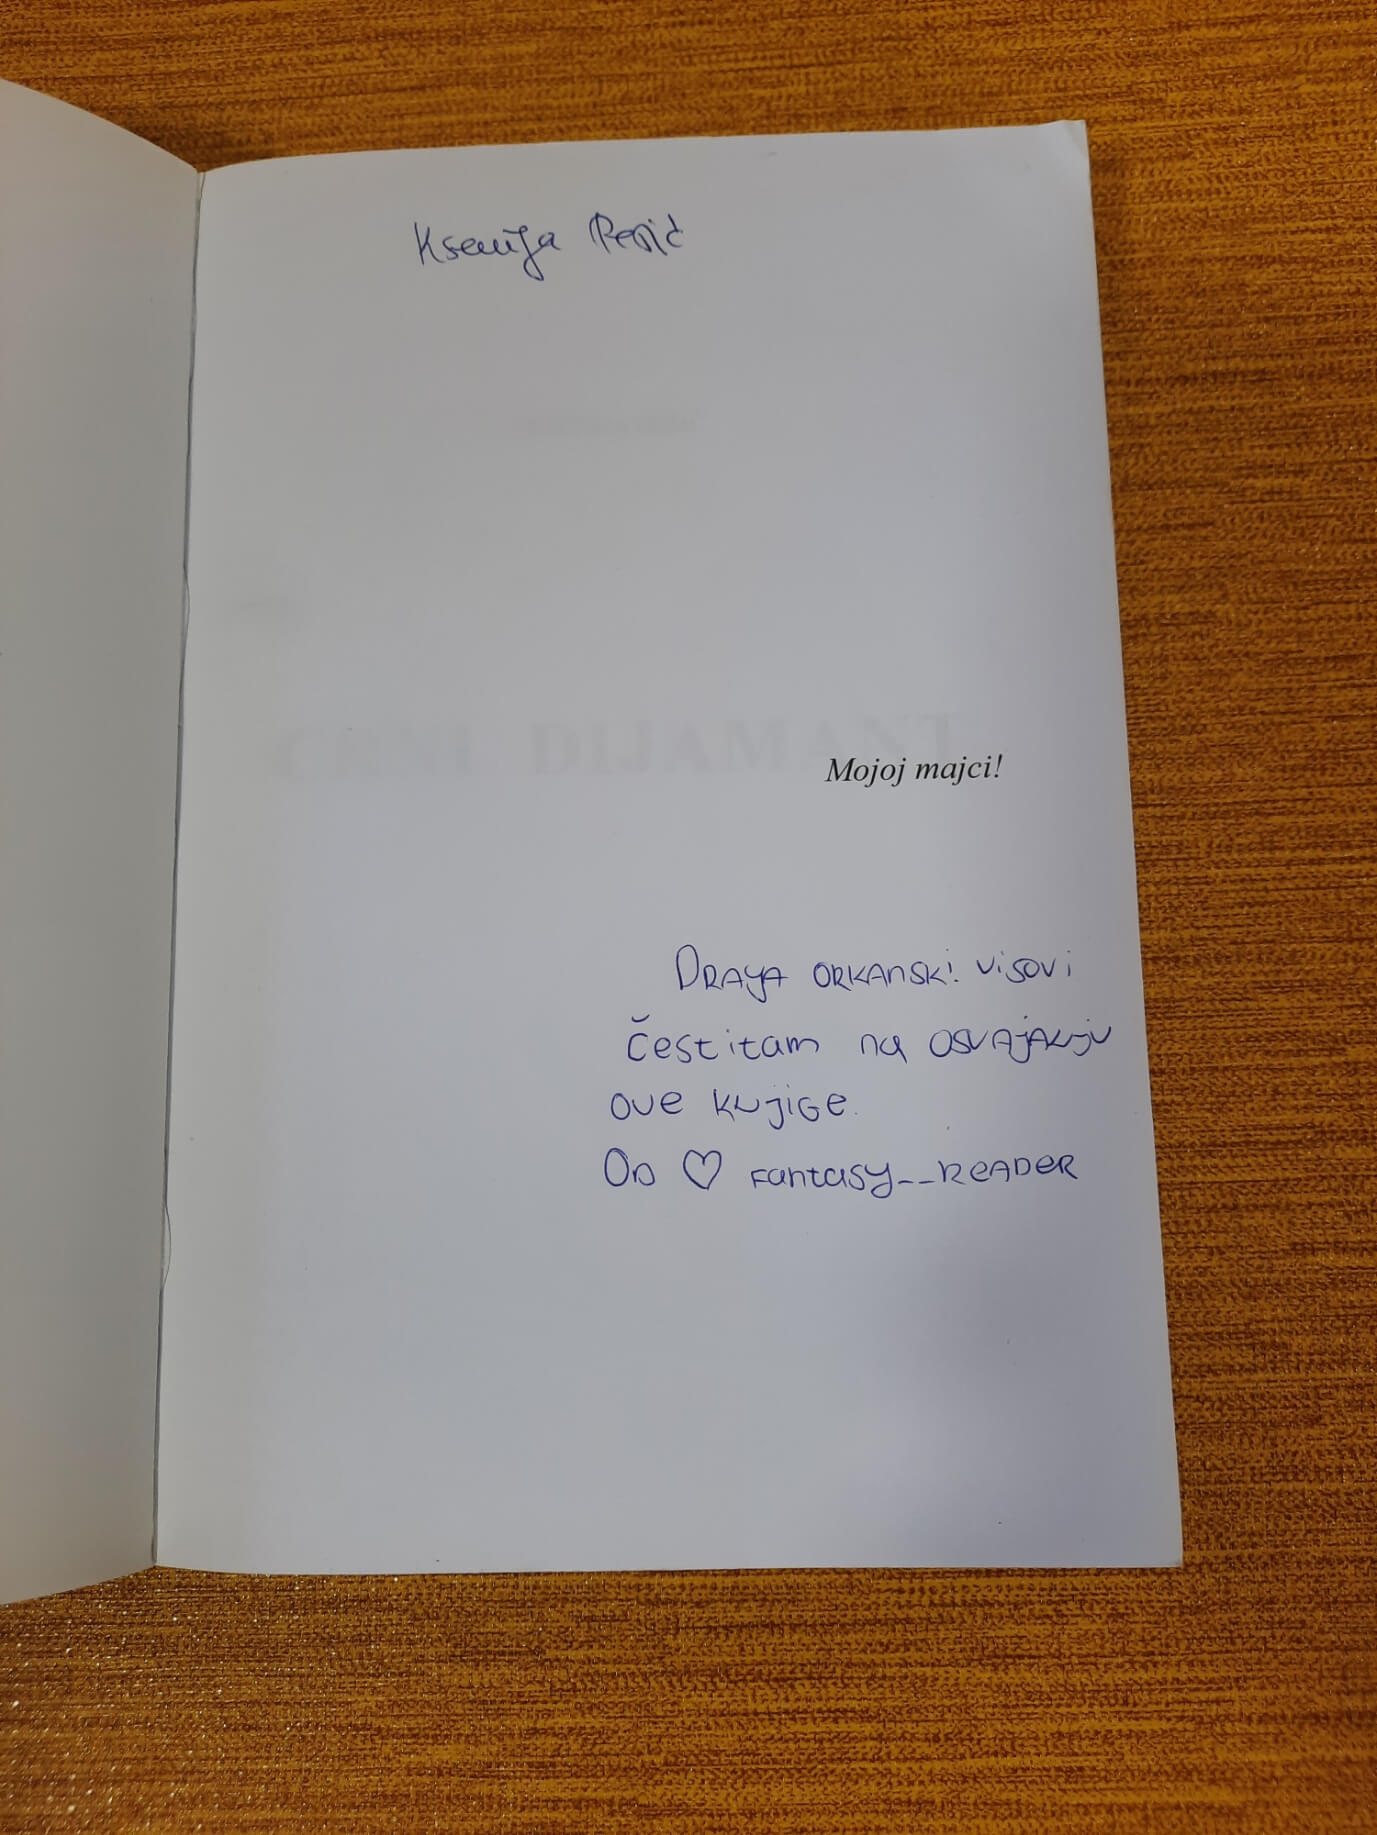 Ksenija Pesić
CRNI DIJAMANT
Mojoj majci!
DRAGA ORKANSKI VISOVI
čestitam na OSVAJANJU
ove knjige.
OD ♡ Fantasy__READER